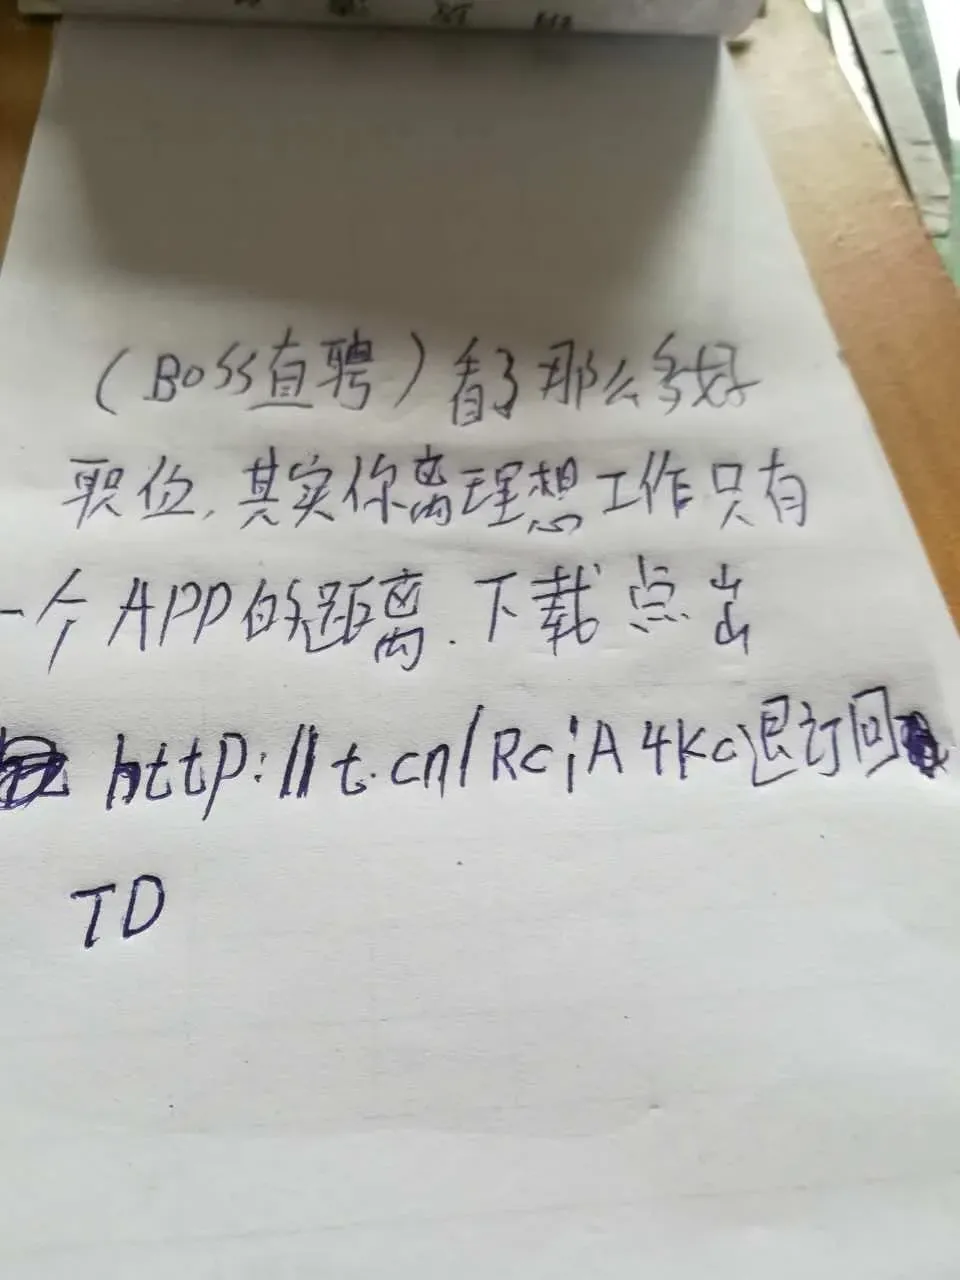 (BOSS直聘)看了那么多好
职位,其实你离理想工作只有
一个APP的距离.下载点出
http://t.cn/RciA4Kc退订回
TD